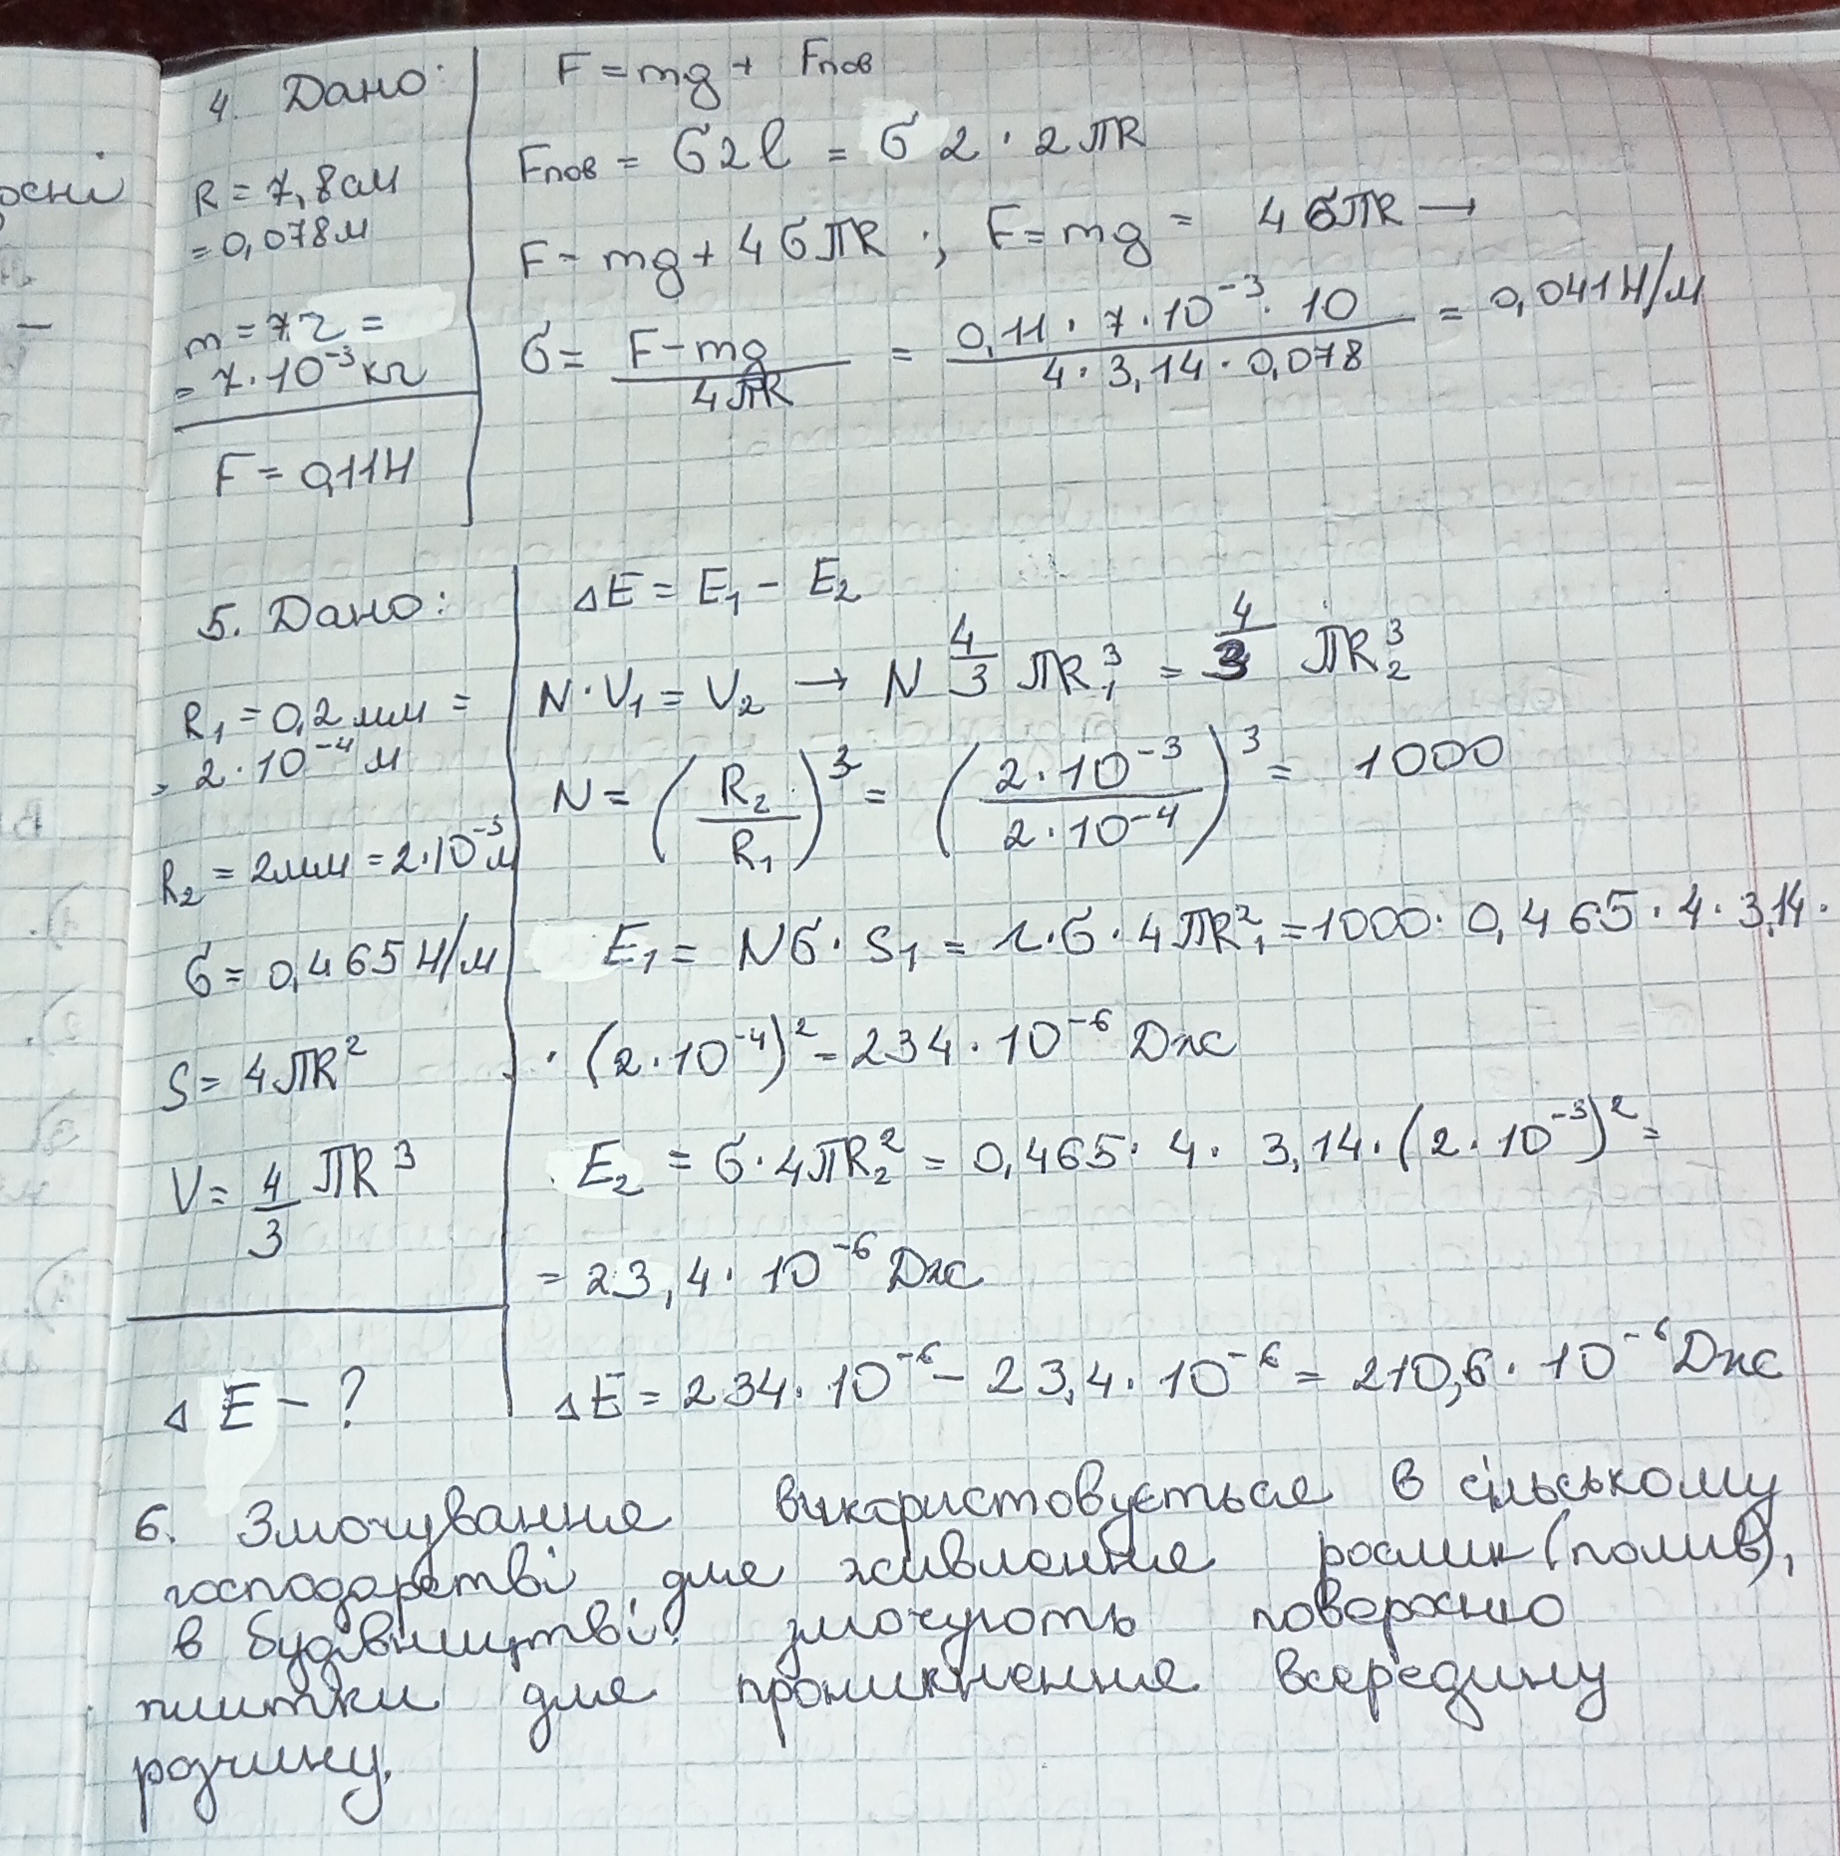 4. Дано:
R = 7,8 см
= 0,078 м
m = 7 г =
= 7 · 10⁻³ кг
F = 0,11 Н
F = mg + Fпов
Fпов = σ2l = σ 2 · 2πR
F = mg + 4σπR ; F = mg = 4σπR →
σ = (F − mg)/(4πR) = (0,11 · 7 · 10⁻³ · 10)/(4 · 3,14 · 0,078) = 0,041 Н/м
5. Дано:
R₁ = 0,2 мм =
= 2 · 10⁻⁴ м
R₂ = 2 мм = 2 · 10⁻³ м
σ = 0,465 Н/м
S = 4πR²
V = 4/3 πR³
ΔE − ?
ΔE = E₁ − E₂
N · V₁ = V₂ → N 4/3 πR₁³ = 4/3 πR₂³
N = (R₂/R₁)³ = (2 · 10⁻³/2 · 10⁻⁴)³ = 1000
E₁ = Nσ · S₁ = r · σ · 4πR₁² = 1000 · 0,465 · 4 · 3,14 ·
· (2 · 10⁻⁴)² = 234 · 10⁻⁶ Дж
E₂ = σ · 4πR₂² = 0,465 · 4 · 3,14 · (2 · 10⁻³)² =
= 23,4 · 10⁻⁶ Дж
ΔE = 234 · 10⁻⁶ − 23,4 · 10⁻⁶ = 210,6 · 10⁻⁶ Дж
6. Змочування використовується в сільському
господарстві для живлення рослин (полив),
в будівництві: змочують поверхню
плитки для проникнення всередину
розчину.